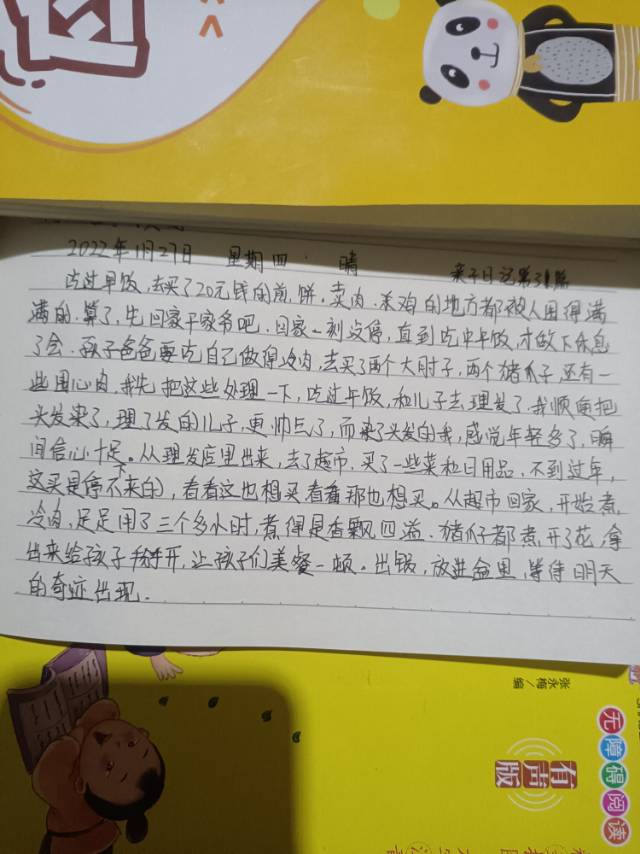 2022年1月27日 星期四 晴 亲子日记第31篇
吃过早饭,去买了20元钱的煎饼.卖肉.杀鸡的地方都被人围得满
满的.算了,先回家干家务吧.回家一刻没停,直到吃中午饭,才做下休息
了会.孩子爸爸要吃自己做得皮肉,去买了两个大肘子,两个猪爪子,还有一
些围心肉,我先把这些处理一下,吃过午饭,和儿子去理发了.我顺便把
头发染了,理了发的儿子,更帅气了,而染了头发的我,感觉年轻多了,瞬
间信心十足。从理发店里出来,去了超市,买了一些菜和日用品,不到过年,
这买是停不来的,看看这也想买看看那也想买。从超市回家,开始煮
冷肉,足足用了三个多小时,煮得是香飘四溢.猪爪子都煮开了花,拿
出来给孩子掰开,让孩子们美餐一顿。出锅,放进盆里,等待明天
的奇迹出现.
张永梅/编
无障碍阅读
有声版